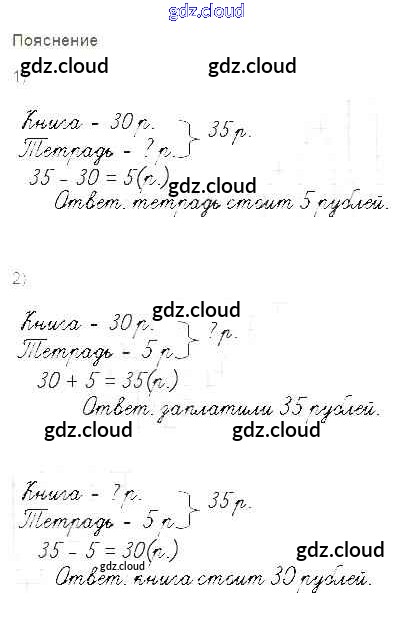 gdz.cloud
Пояснение
gdz.cloud gdz.cloud
1)
Книга - 30 р.
Тетрадь - ? р. } 35 р.
35 - 30 = 5(р.)
gdz.cloud
Ответ. тетрадь стоит 5 рублей.
2)
gdz.cloud
Книга - 30 р.
Тетрадь - 5 р. } ? р.
30 + 5 = 35(р.)
Ответ. заплатили 35 рублей.
gdz.cloud gdz.cloud
Книга - ? р.
Тетрадь - 5 р. } 35 р.
35 - 5 = 30(р.)
gdz.cloud
gdz.cloud
Ответ. книга стоит 30 рублей.
gdz.cloud